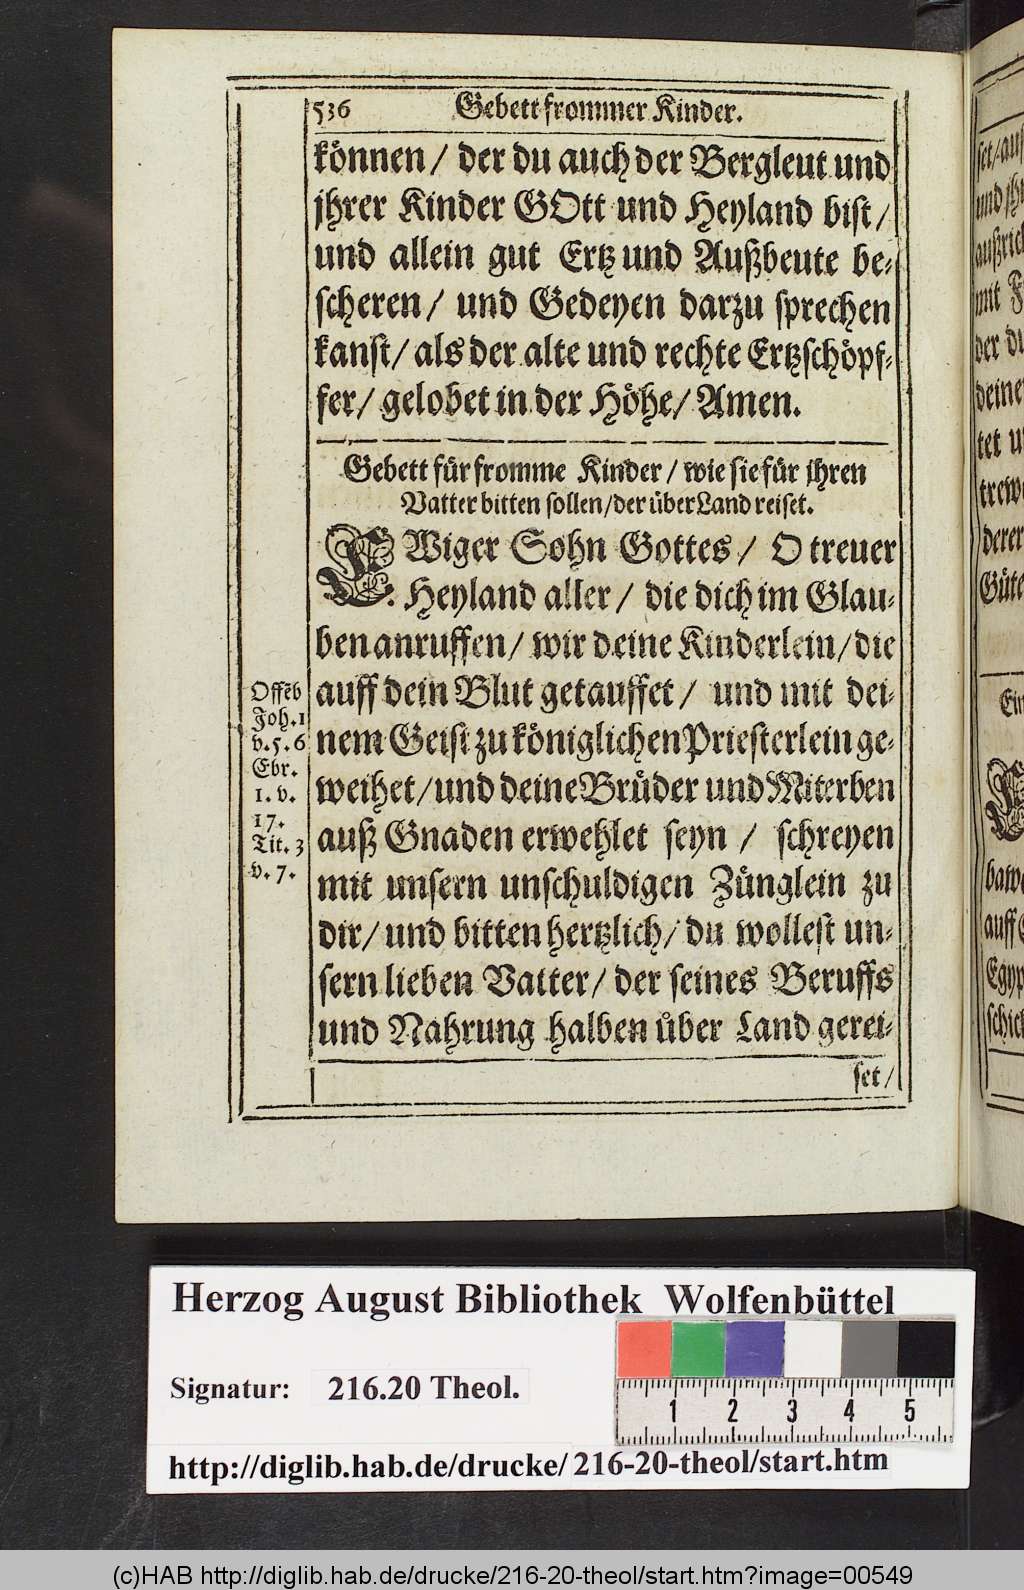 536 Gebett frommer Kinder.
können / der du auch der Bergleut und
jhrer Kinder GOtt und Heyland bist /
und allein gut Ertz und Außbeute be-
scheren / und Gedeyen darzu sprechen
kanst / als der alte und rechte Ertzschöpf-
fer / gelobet in der Höhe / Amen.
Gebett für fromme Kinder / wie sie für jhren
Vatter bitten sollen / der über Land reiset.
EWiger Sohn Gottes / O treuer
Heyland aller / die dich im Glau-
ben anruffen / wir deine Kinderlein / die
auff dein Blut getauffet / und mit dei-
nem Geist zu königlichen Priesterlein ge-
weihet / und deine Brüder und Miterben
auß Gnaden erwehlet seyn / schreyen
mit unsern unschuldigen Zünglein zu
dir / und bitten hertzlich / du wollest un-
sern lieben Vatter / der seines Beruffs
und Nahrung halben über Land gerei-
set /
Offēb
Joh. 1
v. 5. 6
Ebr.
1. v.
17.
Tit. 3
v. 7.
set / auß
und jhr
mit
der du
deine
tet
derer
Güte
Ein
auff
Herzog August Bibliothek Wolfenbüttel
Signatur: 216.20 Theol.
1 2 3 4 5
http://diglib.hab.de/drucke/216-20-theol/start.htm
(c)HAB http://diglib.hab.de/drucke/216-20-theol/start.htm?image=00549